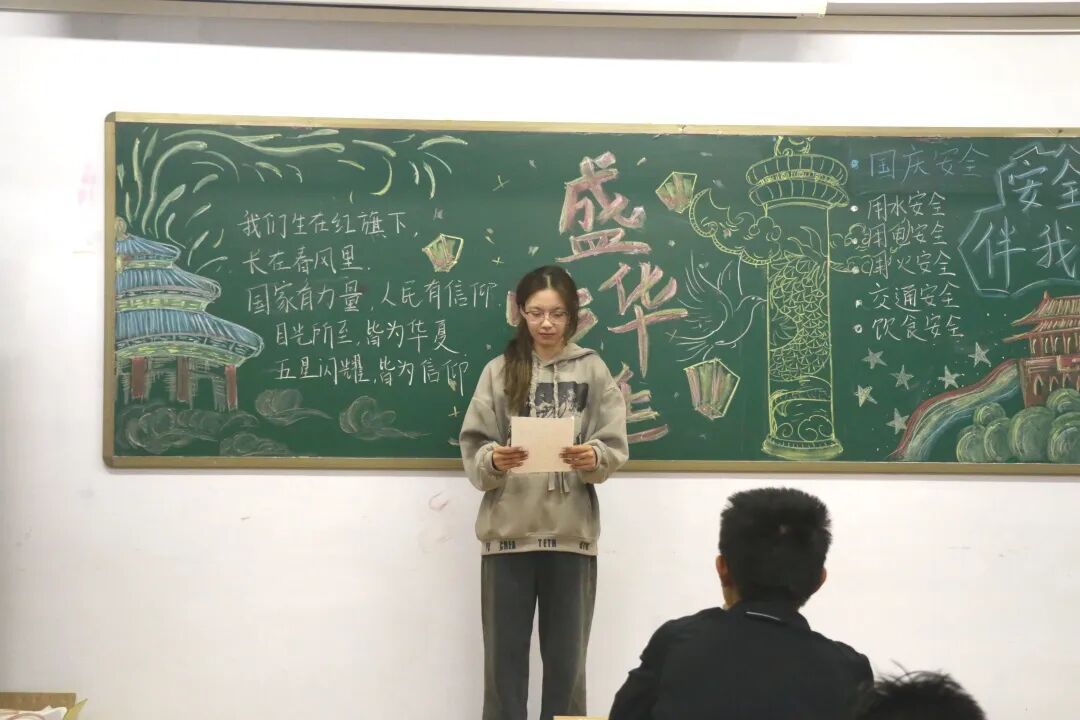 我们生在红旗下，
长在春风里.
国家有力量，人民有信仰.
目光所至，皆为华夏
五星闪耀，皆为信仰
盛
华
国庆安全
用水安全
用电安全
用火安全
交通安全
饮食安全
安全
伴我